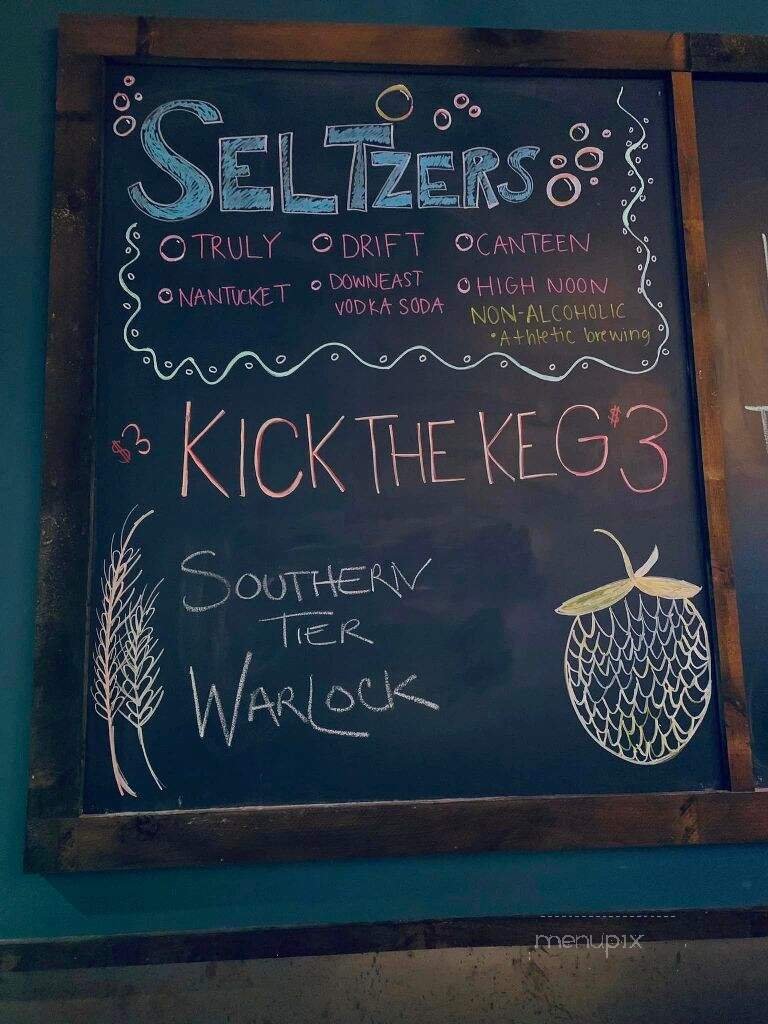 SELTZERS
TRULY DRIFT CANTEEN
NANTUCKET DOWNEAST VODKA SODA HIGH NOON
NON-ALCOHOLIC
•Athletic brewing
$3 KICK THE KEG $3
SOUTHERN
TIER
WARLOCK
menupix